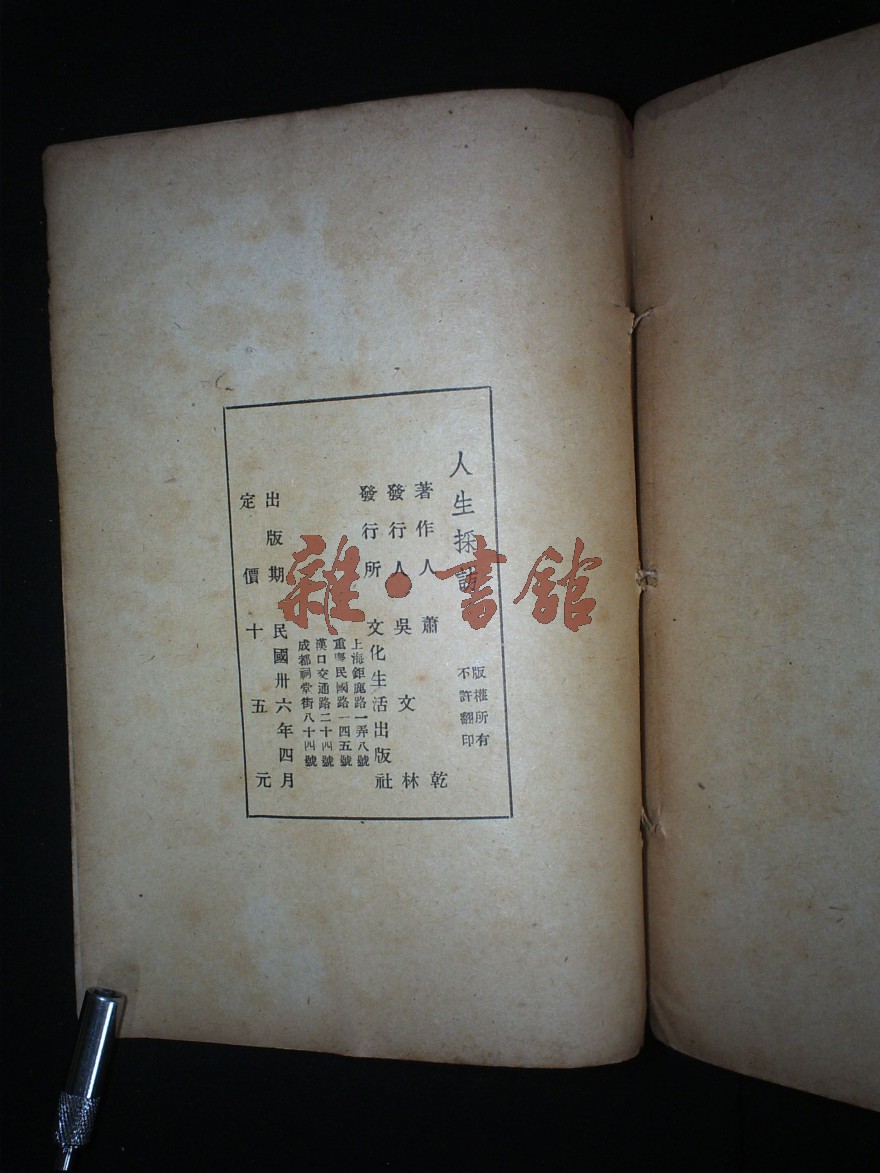 人生採訪
版權所有
不許翻印
著作人 蕭乾
發行人 吳文林
發行所 文化生活出版社
上海鉅鹿路一弄八號
重慶民國路一四五號
漢口交通路二十四號
成都祠堂街八十四號
出版期 民國卅六年四月
定價 十五元
雜·書館